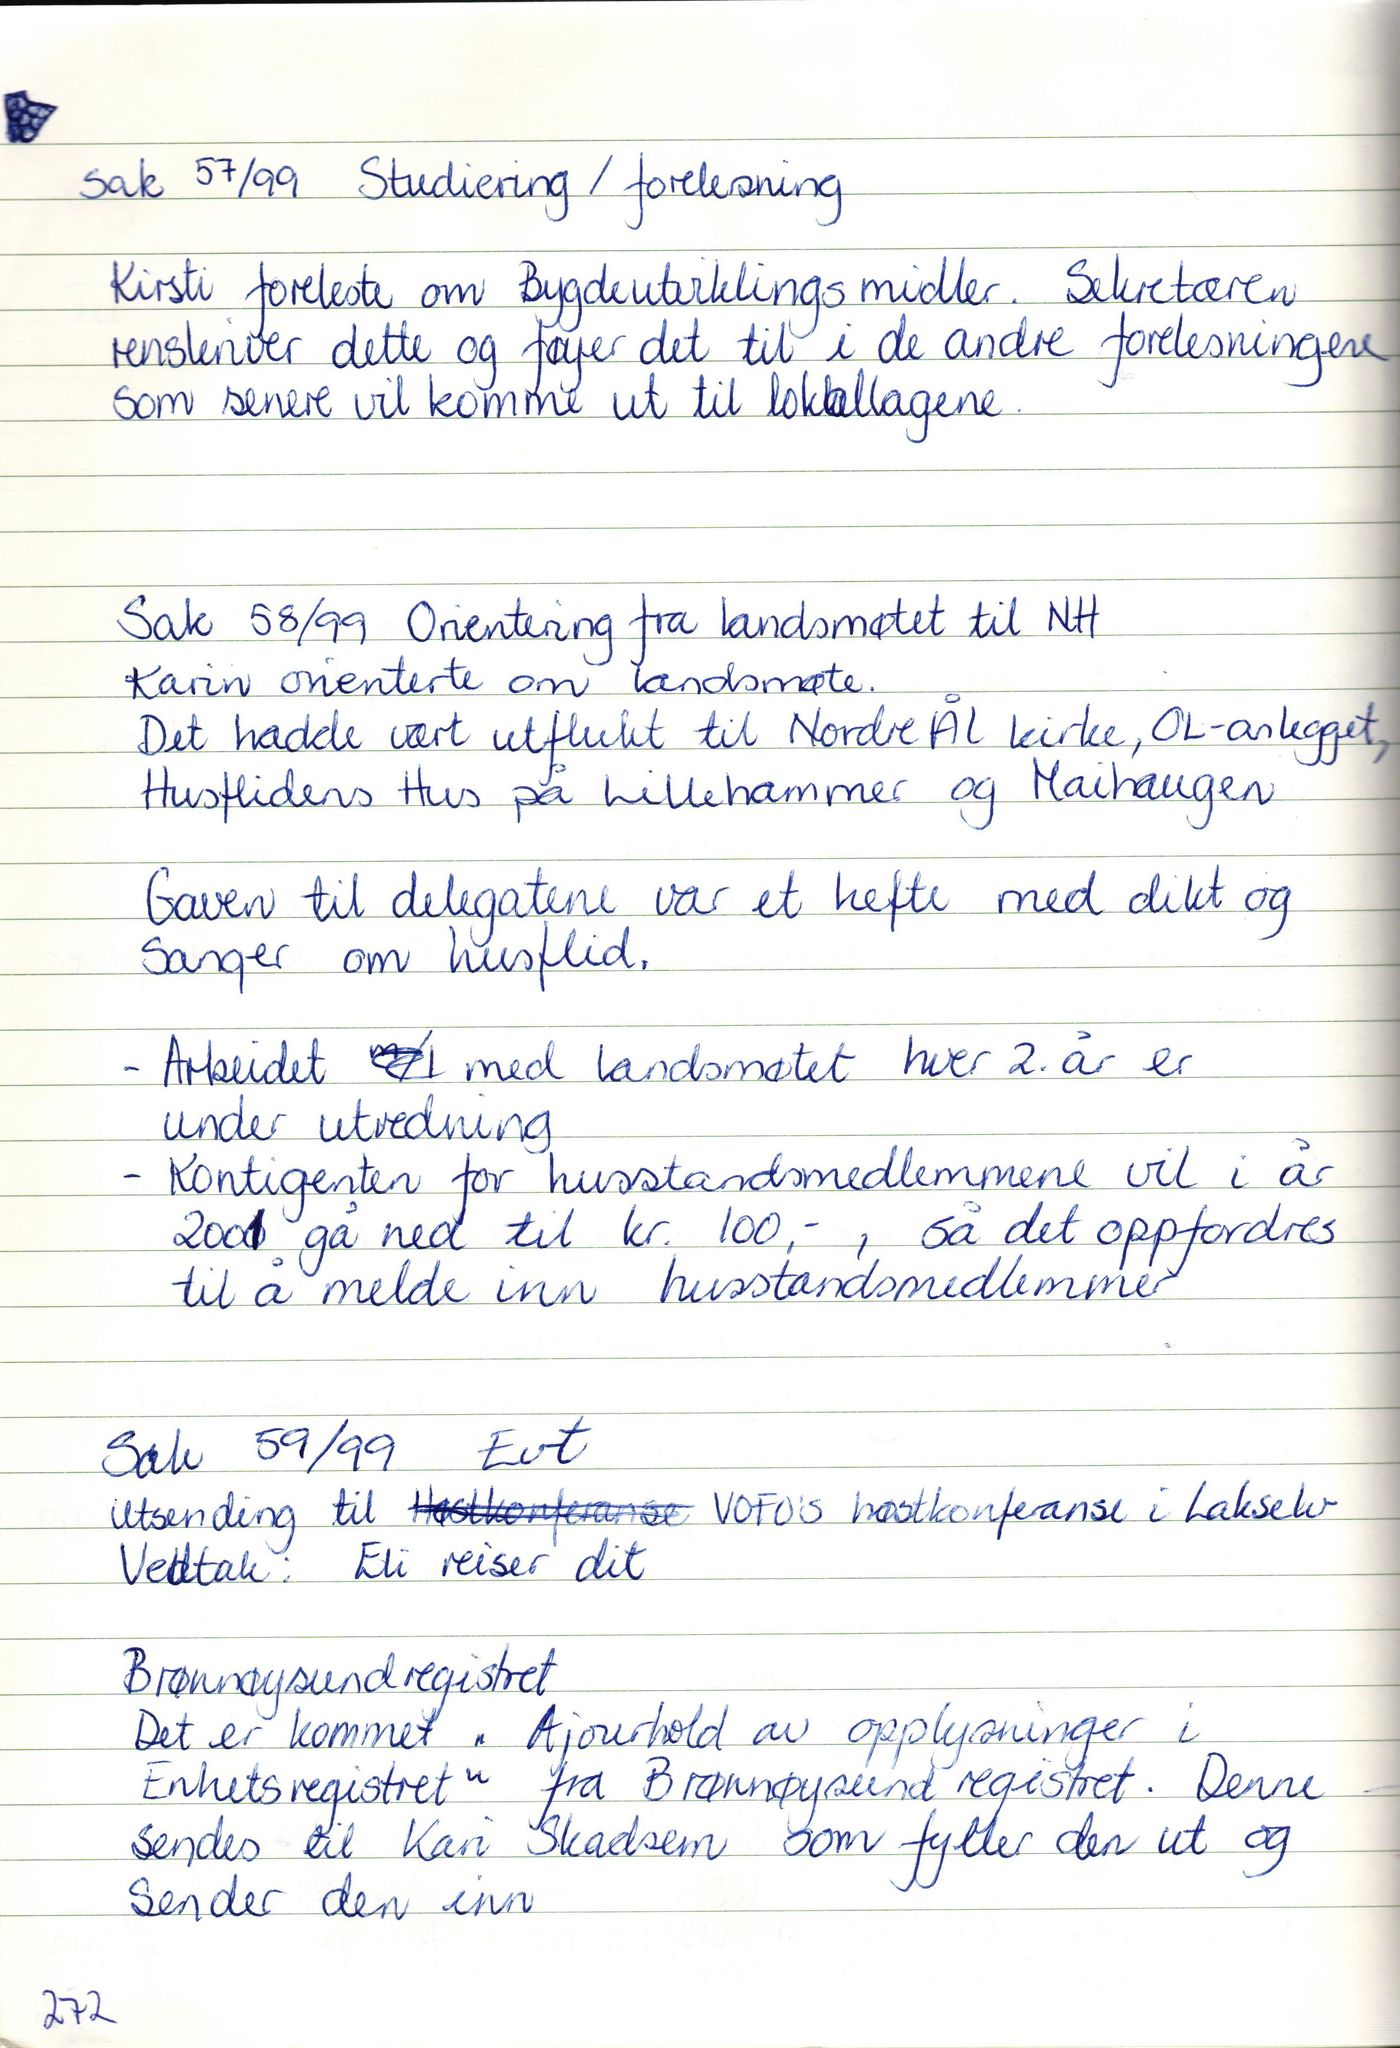 Sak 57/99 Studiering / forelesning
Kirsti foreleste om Bygdeutviklingsmidler. Sekretæren
renskriver dette og føyer det til i de andre forelesningene
som senere vil komme ut til lokallagene.
Sak 58/99 Orientering fra landsmøtet til NH
Karin orienterte om landsmøte.
Det hadde vært utflukt til Nordre Ål kirke, OL-anlegget,
Husflidens Hus på Lillehammer og Maihaugen
Gaven til delegatene var et hefte med dikt og
Sanger om husflid.
- Arbeidet med landsmøtet hver 2. år er
under utredning
- Kontigenten for husstandsmedlemmene vil i år
2001 gå ned til kr. 100,- , så det oppfordres
til å melde inn husstandsmedlemmer
Sak 59/99 Evt
Utsending til Høstkonferanse VOFO's høstkonferanse i Lakselv
Vedtak: Eli reiser dit
Brønnøysundregistret
Det er kommet " Ajourhold av opplysninger i
Enhetsregistret" fra Brønnøysundregistret. Denne
sendes til Kari Skadsem som fyller den ut og
Sender den inn
272